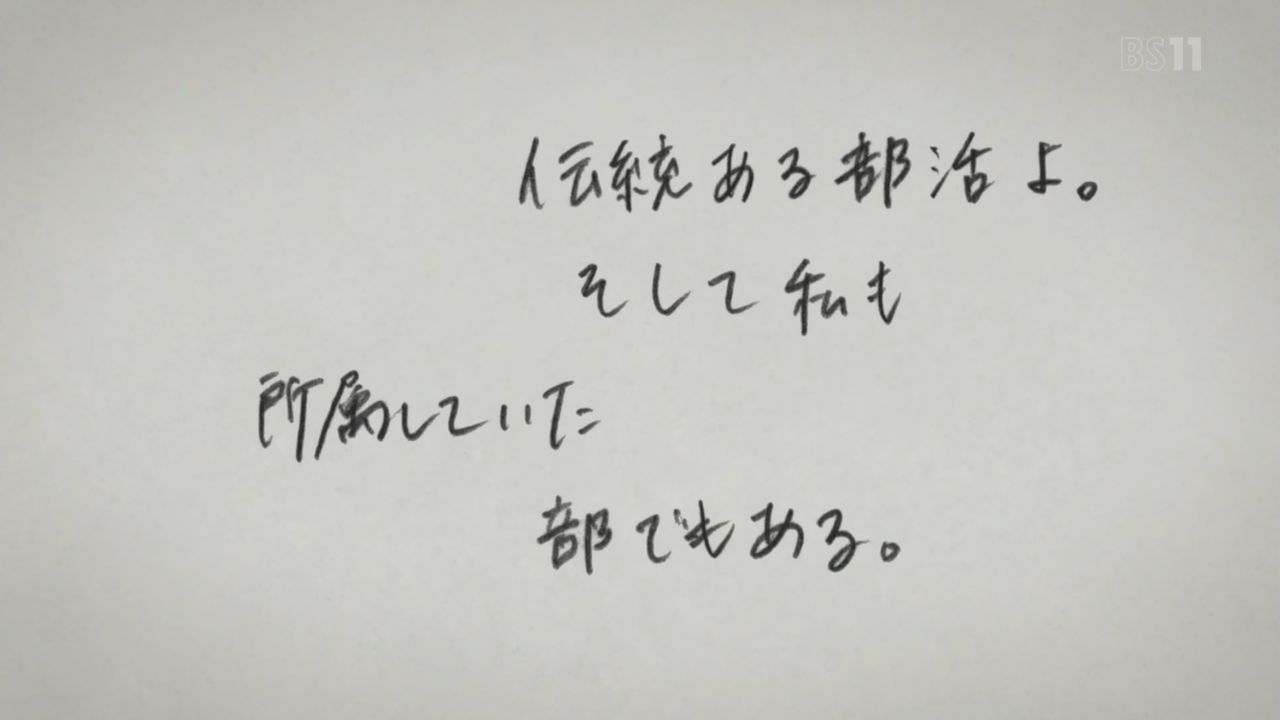 BS11
伝統ある部活よ。
そして私も
所属していた
部でもある。